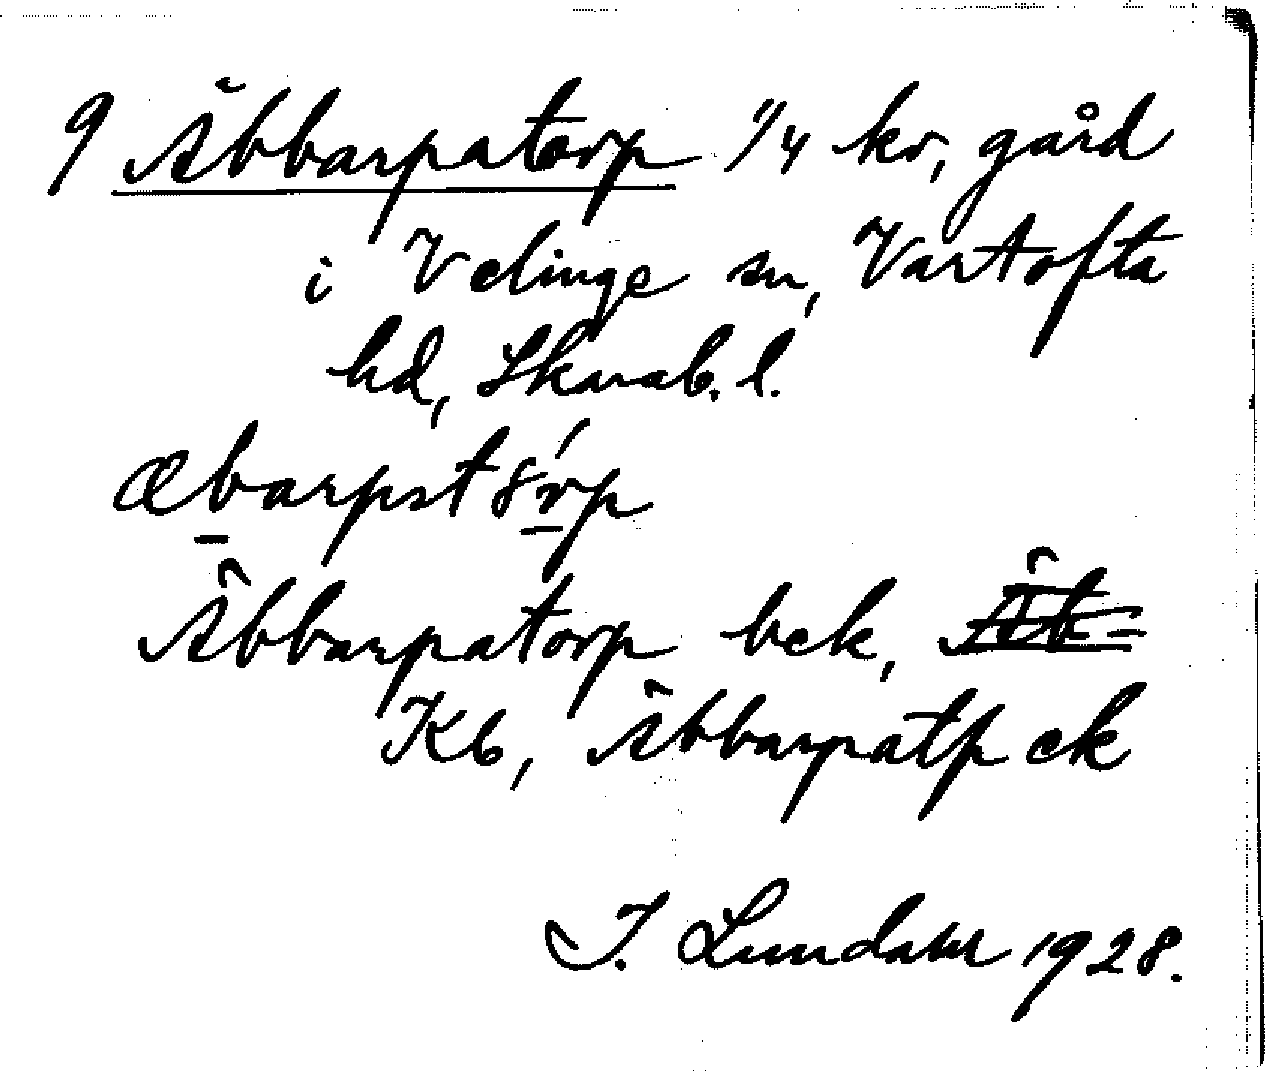 9 Äbbarpatorp 1/4 kr, gård
i Velinge sn, Vartofta
hd, Skarab. l.
æbarpst8rp
Äbbarpatorp bek,
Kb, Äbbarpatp ek
I. Lundahl 1928.